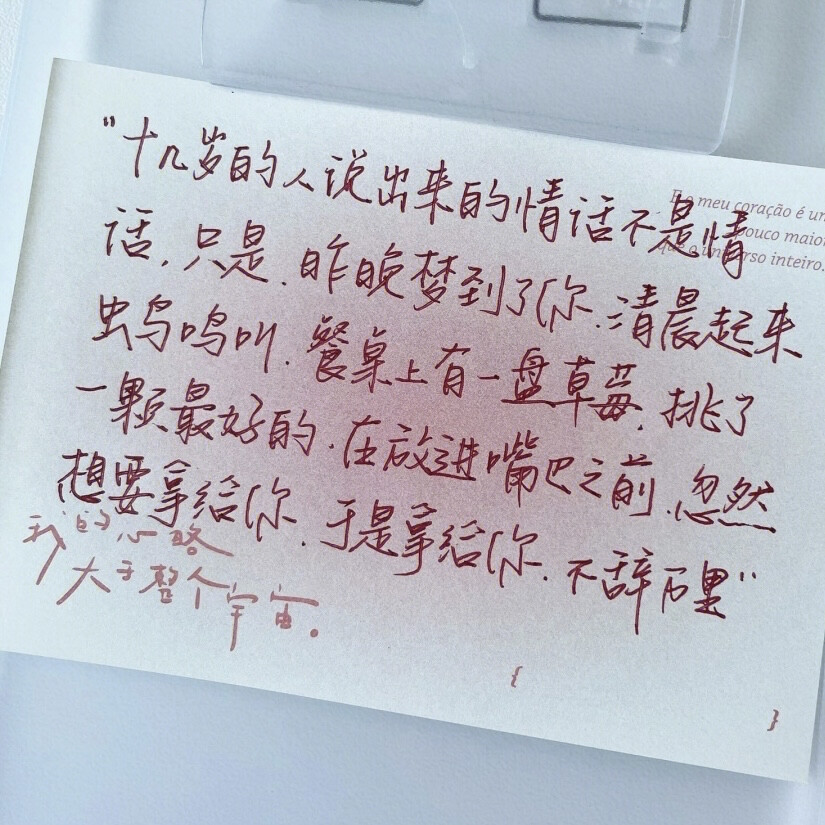 “十几岁的人说出来的情话不是情
话,只是.昨晚梦到了你.清晨起来
虫鸟鸣叫.餐桌上有一盘草莓.挑了
一颗最好的.在放进嘴巴之前.忽然
想要拿给你.于是拿给你.不辞万里”
我的心略
大于整个宇宙。
E o meu coração é um
pouco maior
que o universo inteiro.
{ }